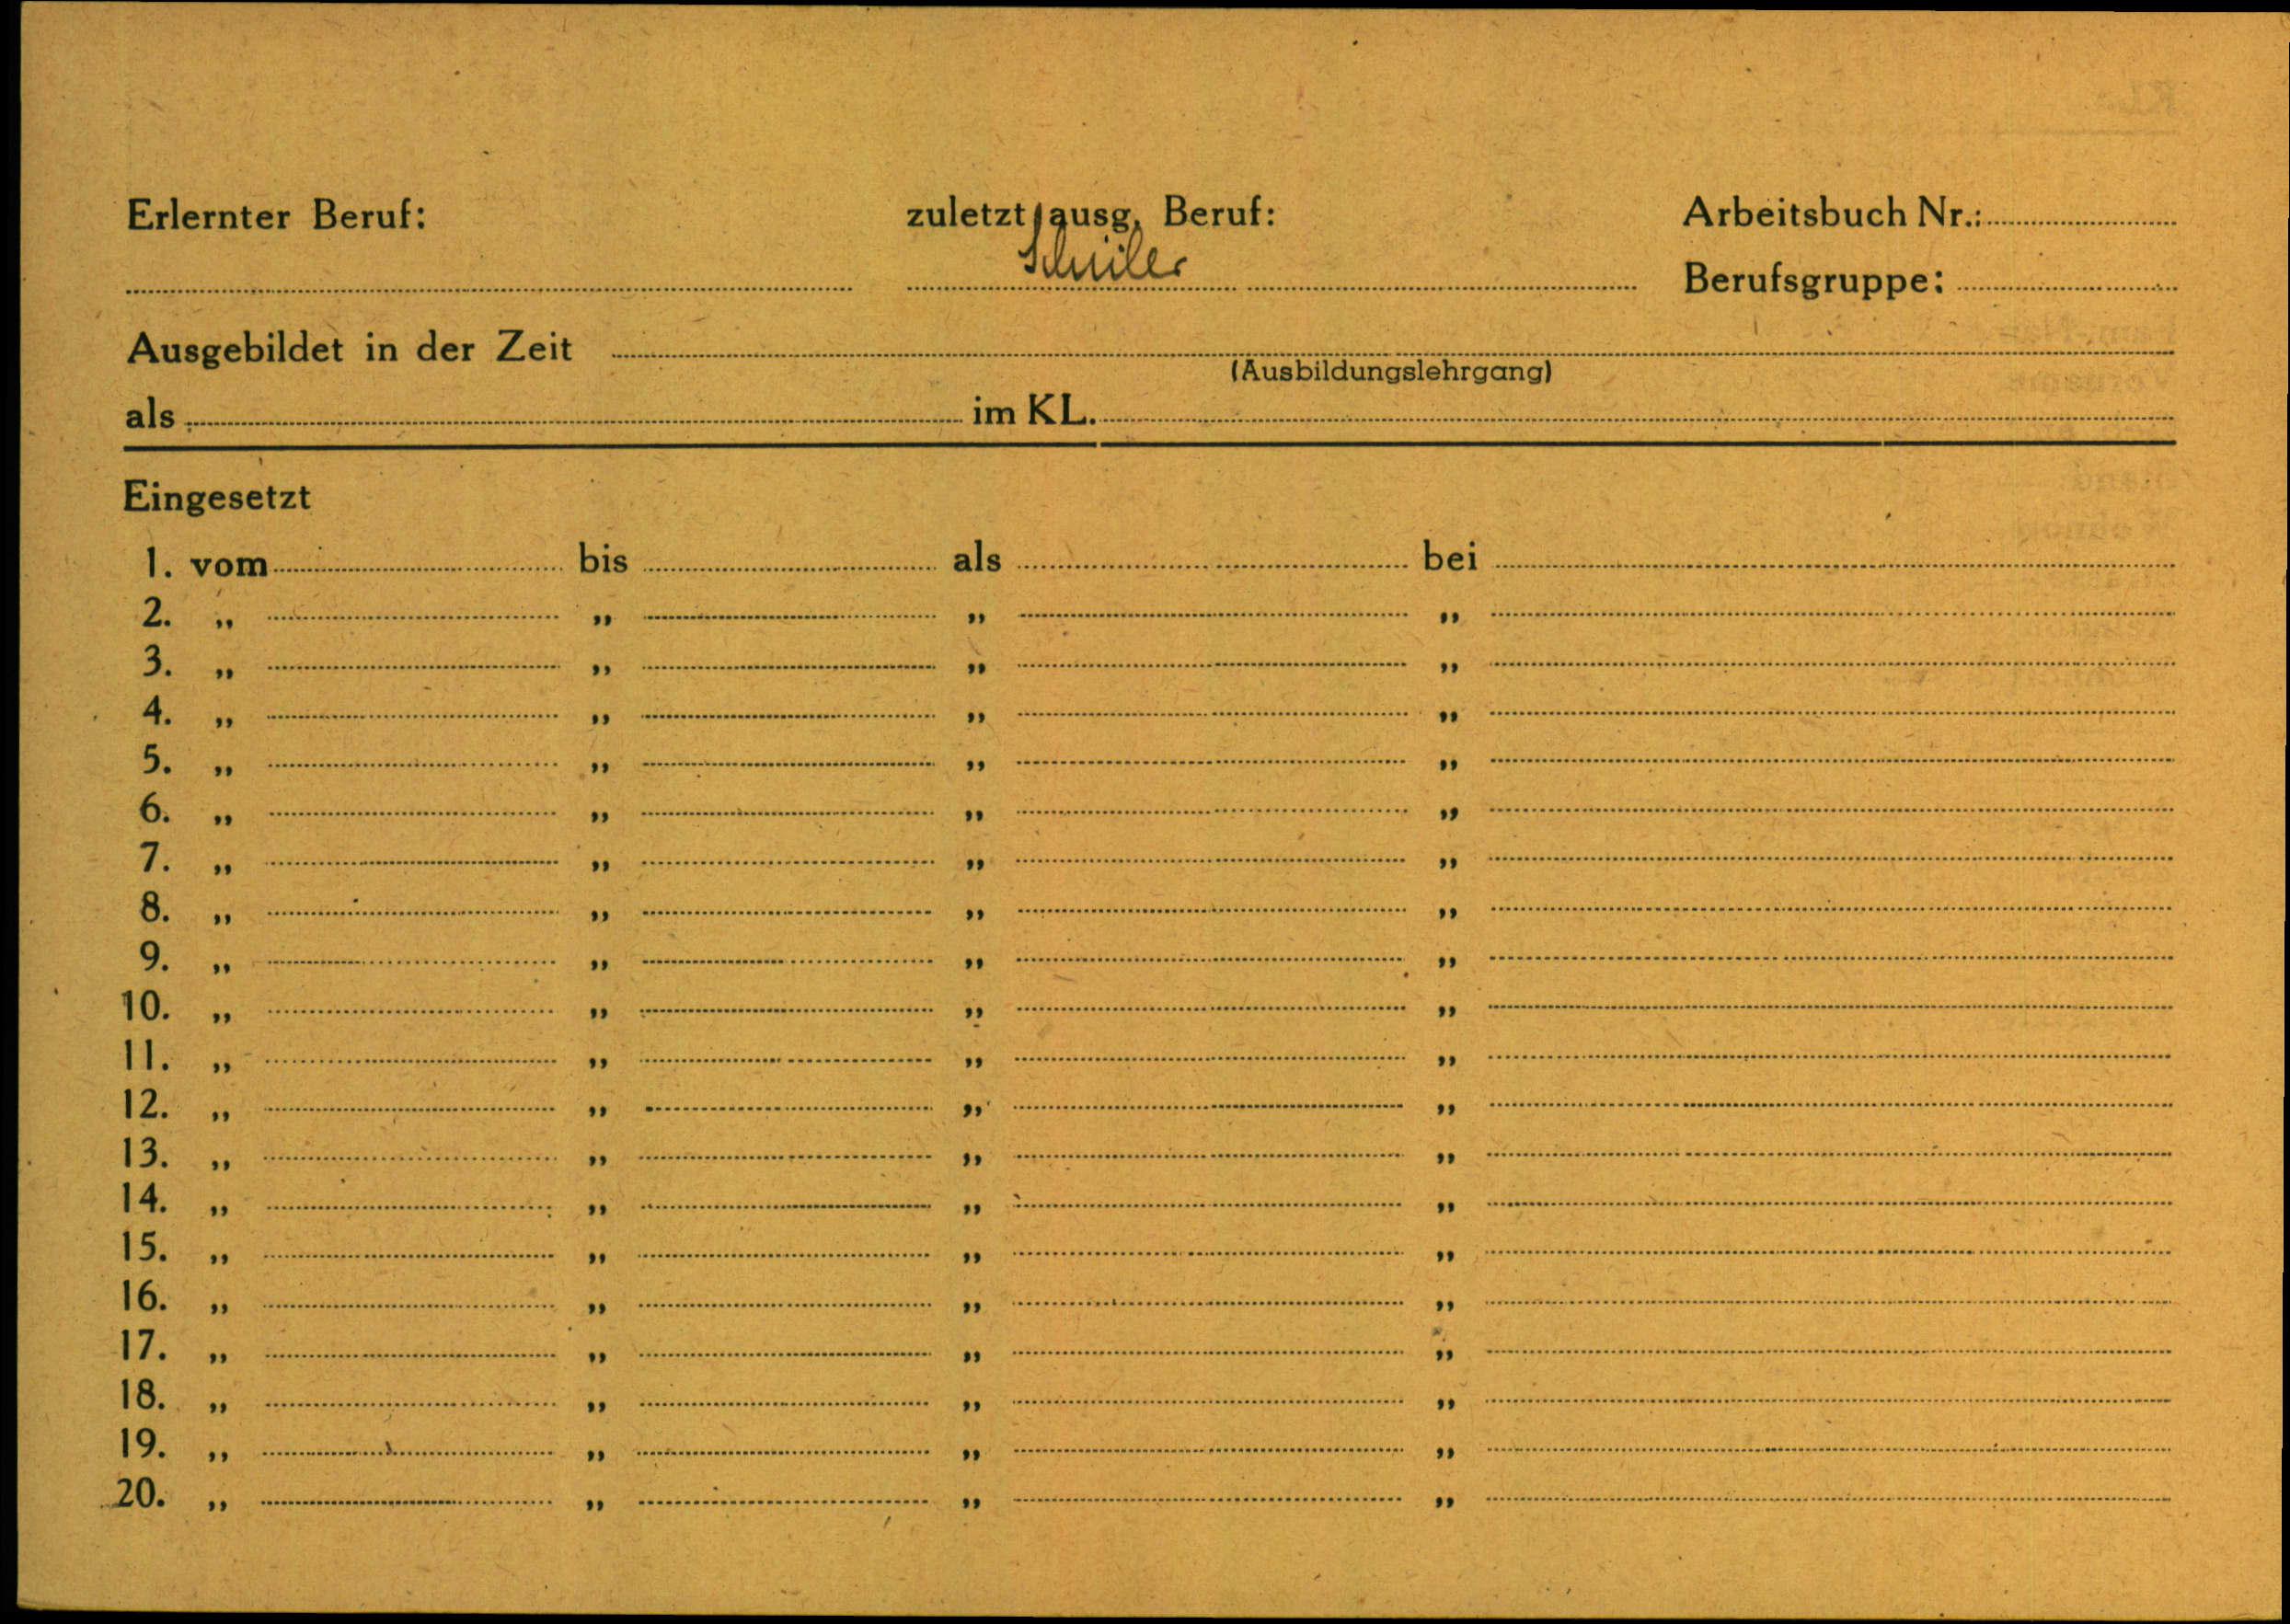 Erlernter Beruf: zuletzt ausg. Beruf: Arbeitsbuch Nr.:
Schüler Berufsgruppe:
Ausgebildet in der Zeit
(Ausbildungslehrgang)
als im KL.
Eingesetzt
1. vom bis als bei
2. „ „ „ „
3. „ „ „ „
4. „ „ „ „
5. „ „ „ „
6. „ „ „ „
7. „ „ „ „
8. „ „ „ „
9. „ „ „ „
10. „ „ „ „
11. „ „ „ „
12. „ „ „ „
13. „ „ „ „
14. „ „ „ „
15. „ „ „ „
16. „ „ „ „
17. „ „ „ „
18. „ „ „ „
19. „ „ „ „
20. „ „ „ „